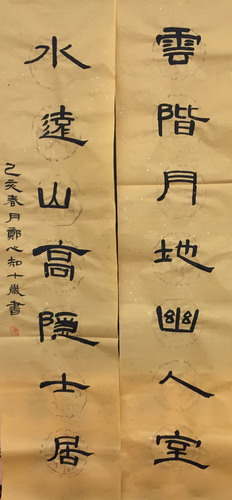 雲階月地幽人室
水遠山高隱士居
己亥春月鄭心知十歲書